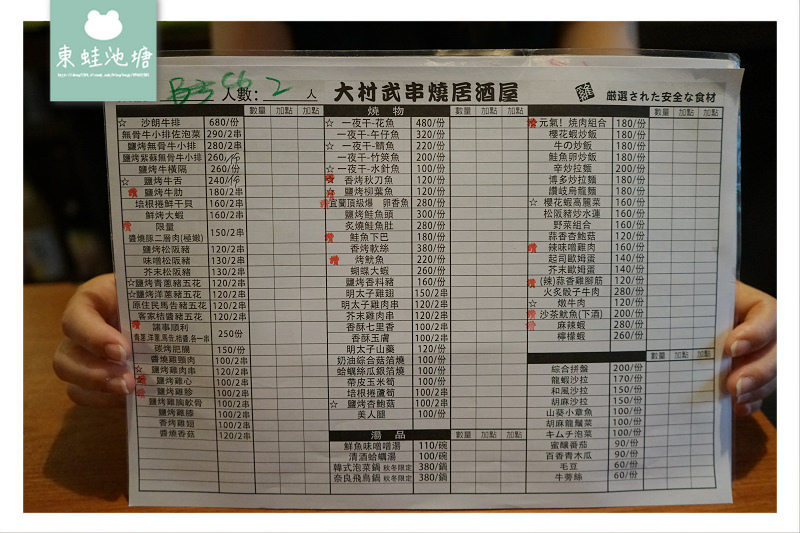 東蛙池塘
B5 C6 人數: 2 人
大村武串燒居酒屋
厳選された安全な食材
數量 加點 加點
☆ 沙朗牛排 680/份
無骨牛小排佐泡菜 290/2串
鹽烤無骨牛小排 280/2串
鹽烤紫蘇無骨牛小排 260/份
鹽烤牛橫隔 260/份
☆ 鹽烤牛舌 240/份
讚 鹽烤牛肋 180/2串
培根捲鮮干貝 160/2串
鮮烤大蝦 160/2串
讚 限量
醬燒豚二層肉(極嫩) 150/2串
鹽烤松阪豬 130/2串
味噌松阪豬 120/2串
芥末松阪豬 120/2串
☆鹽烤青蔥豬五花 120/2串
☆鹽烤洋蔥豬五花 120/2串
原住民馬告豬五花 120/2串
客家桔醬豬五花 120/2串
讚 諸事順利
青蔥,洋蔥,馬告,桔醬,各一串 250份
碳烤肥腸 150/份
醬燒雞腿肉 100/2串
☆ 鹽烤雞肉串 120/2串
鹽烤雞心 100/2串
鹽烤雞胗 100/2串
鹽烤雞胸軟骨 100/2串
鹽烤雞膝 100/2串
香烤雞翅 100/2串
醬燒香菇 120/2串
燒物 數量 加點 加點
☆ 一夜干-花魚 480/份
一夜干-午仔魚 320/份
☆ 一夜干-鯖魚 220/份
一夜干-竹筴魚 200/份
☆ 一夜干-水針魚 100/份
讚 香烤秋刀魚 120/份
鹽烤柳葉魚 120/份
宜蘭頂級爆卵香魚 280/份
鹽烤鮭魚頭 300/份
炙燒鮭魚肚 280/份
讚 鮭魚下巴 180/份
香烤軟絲 380/份
讚 烤魷魚 220/份
蝴蝶大蝦 260/份
鹽烤香料豬 160/份
明太子雞翅 150/2串
明太子雞肉串 120/2串
芥末雞肉串 120/2串
香酥七里香 100/2串
香酥玉膚 100/2串
明太子山藥 120/份
奶油綜合菇箔燒 100/份
蛤蠣絲瓜銀箔燒 100/份
帶皮玉米筍 100/份
培根捲蘆筍 100/2串
☆ 鹽烤杏鮑菇 100/2串
美人腿 100/份
湯品 數量 加點 加點
鮮魚味噌噌湯 110/碗
清酒蛤蠣湯 100/碗
韓式泡菜鍋 秋冬限定 380/鍋
奈良飛鳥鍋 秋冬限定 380/鍋
數量 加點 加點
讚 元氣!燒肉組合 180/份
櫻花蝦炒飯 180/份
牛の炒飯 180/份
鮭魚卵炒飯 180/份
辛炒拉麵 200/份
博多炒拉麵 180/份
讚岐烏龍麵 180/份
☆ 櫻花蝦高麗菜 160/份
松阪豬炒水蓮 180/份
野菜組合 160/份
蒜香杏鮑菇 120/份
讚 辣味噌雞肉 160/份
起司歐姆蛋 140/份
芥末歐姆蛋 140/份
讚 (辣)蒜香雞腳筋 120/份
火炙骰子牛肉 280/份
☆ 燉牛肉 150/份
讚 沙茶魷魚(下酒) 200/份
讚 麻辣蝦 280/份
檸檬蝦 260/份
數量 加點 加點
綜合拼盤 200/份
龍蝦沙拉 170/份
和風沙拉 150/份
胡麻沙拉 150/份
山葵小章魚 100/份
胡麻龍鬚菜 100/份
キムチ泡菜 100/份
蜜釀番茄 90/份
百香青木瓜 90/份
毛豆 60/份
牛蒡絲 60/份